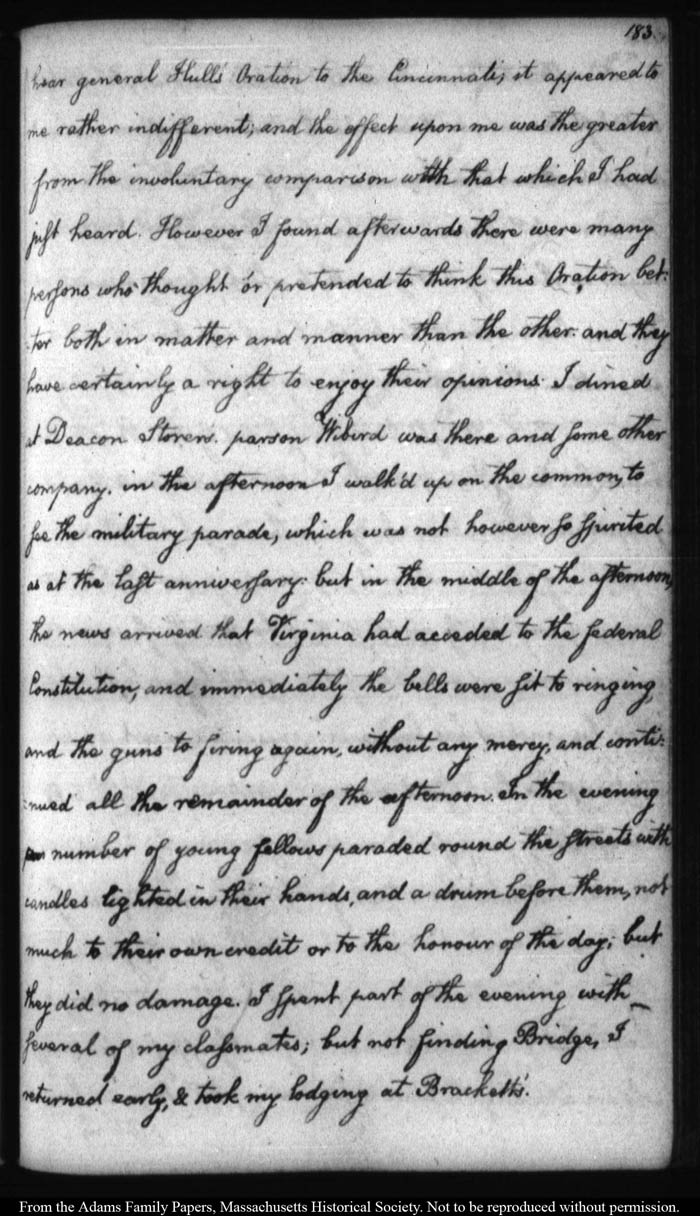 183.
hear general Hull's Oration to the Cincinnati; it appeared to
me rather indifferent; and the effect upon me was the greater
from the involuntary comparison with that which I had
just heard. However I found afterwards there were many
persons who thought or pretended to think this Oration bet:
:ter both in matter and manner than the other: and they
have certainly a right to enjoy their opinions. I dined
at Deacon Storers. parson Wibird was there and some other
company. in the afternoon I walk'd up on the common, to
see the military parade, which was not however so spirited
as at the last anniversary: but in the middle of the afternoon,
the news arrived that Virginia had acceded to the federal
Constitution, and immediately the bells were sit to ringing
and the guns to firing again, without any mercy, and conti:
:nued all the remainder of the afternoon. In the evening
number of young fellows paraded round the streets with
candles lighted in their hands, and a drum before them, not
much to their own credit or to the honour of the day; but
they did no damage. I spent part of the evening with
several of my classmates; but not finding Bridge, I
returned early, & took my lodging at Brackett's.
From the Adams Family Papers, Massachusetts Historical Society. Not to be reproduced without permission.